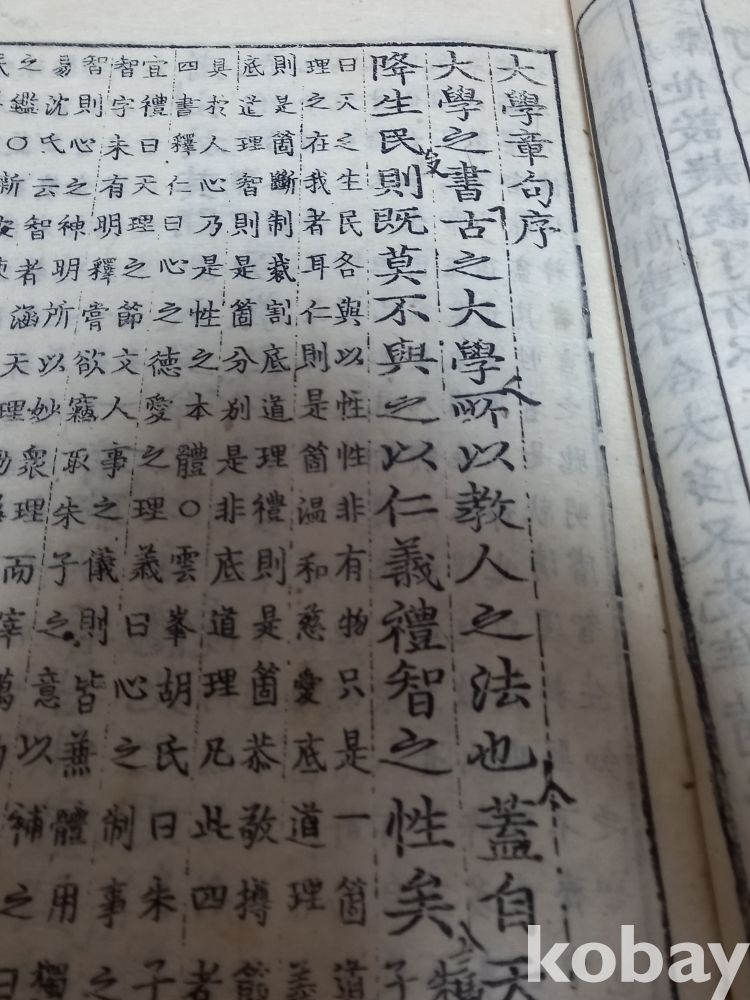 大學章句序
大學之書古之大學所以教人之法也蓋自天
降生民則既莫不與之以仁義禮智之性矣
曰天之生民各與以性性非有物只是一箇道
理之在我者耳仁則是箇溫和慈愛底道理義
則是箇斷制裁割底道理禮則是箇恭敬撙節
底道理智則是箇分别是非底道理凡此四者
具於人心乃是性之本體○雲峯胡氏曰朱子
四書釋仁曰心之德愛之理義曰心之制事之
宜禮曰天理之節文人事之儀則皆兼體用獨
智字未有明釋嘗欲竊取朱子之意以補之曰
智則心之神明所以妙衆理而宰萬
易沈氏云智者涵天理
之鑑○新安陳
kobay